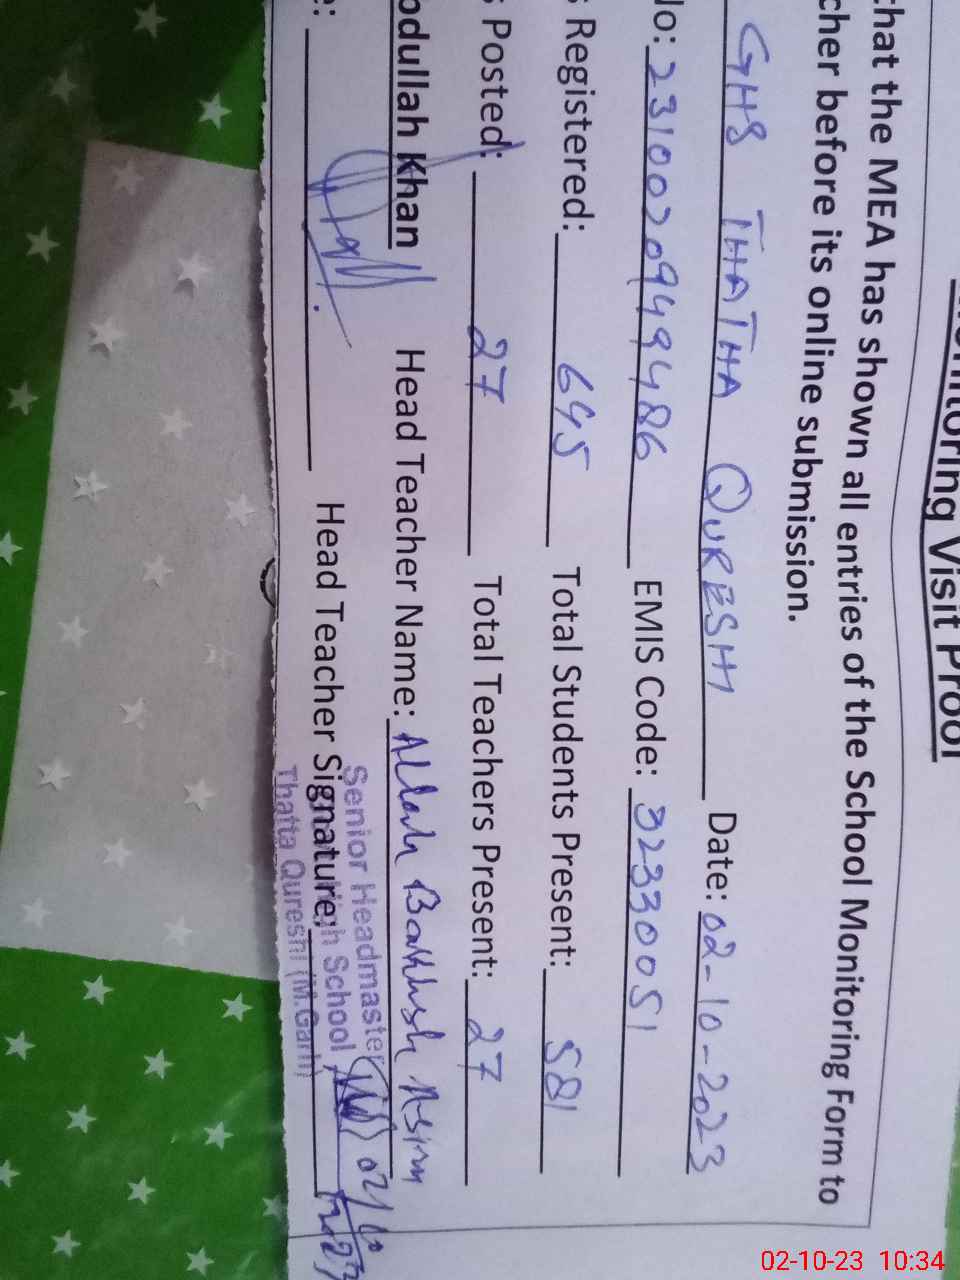 nitoring Visit Proof
that the MEA has shown all entries of the School Monitoring Form to
cher before its online submission.
GHS THATHA QURESHI Date: 02-10-2023
No: 2310020949486 EMIS Code: 32330051
s Registered: 645 Total Students Present: 581
s Posted: 27 Total Teachers Present: 27
bdullah Khan Head Teacher Name: Allah Bakhsh Asim
e: Head Teacher Signature:
Senior Headmaster
High School
Thatta Qureshi (M.Garh)
02-10-23 10:34